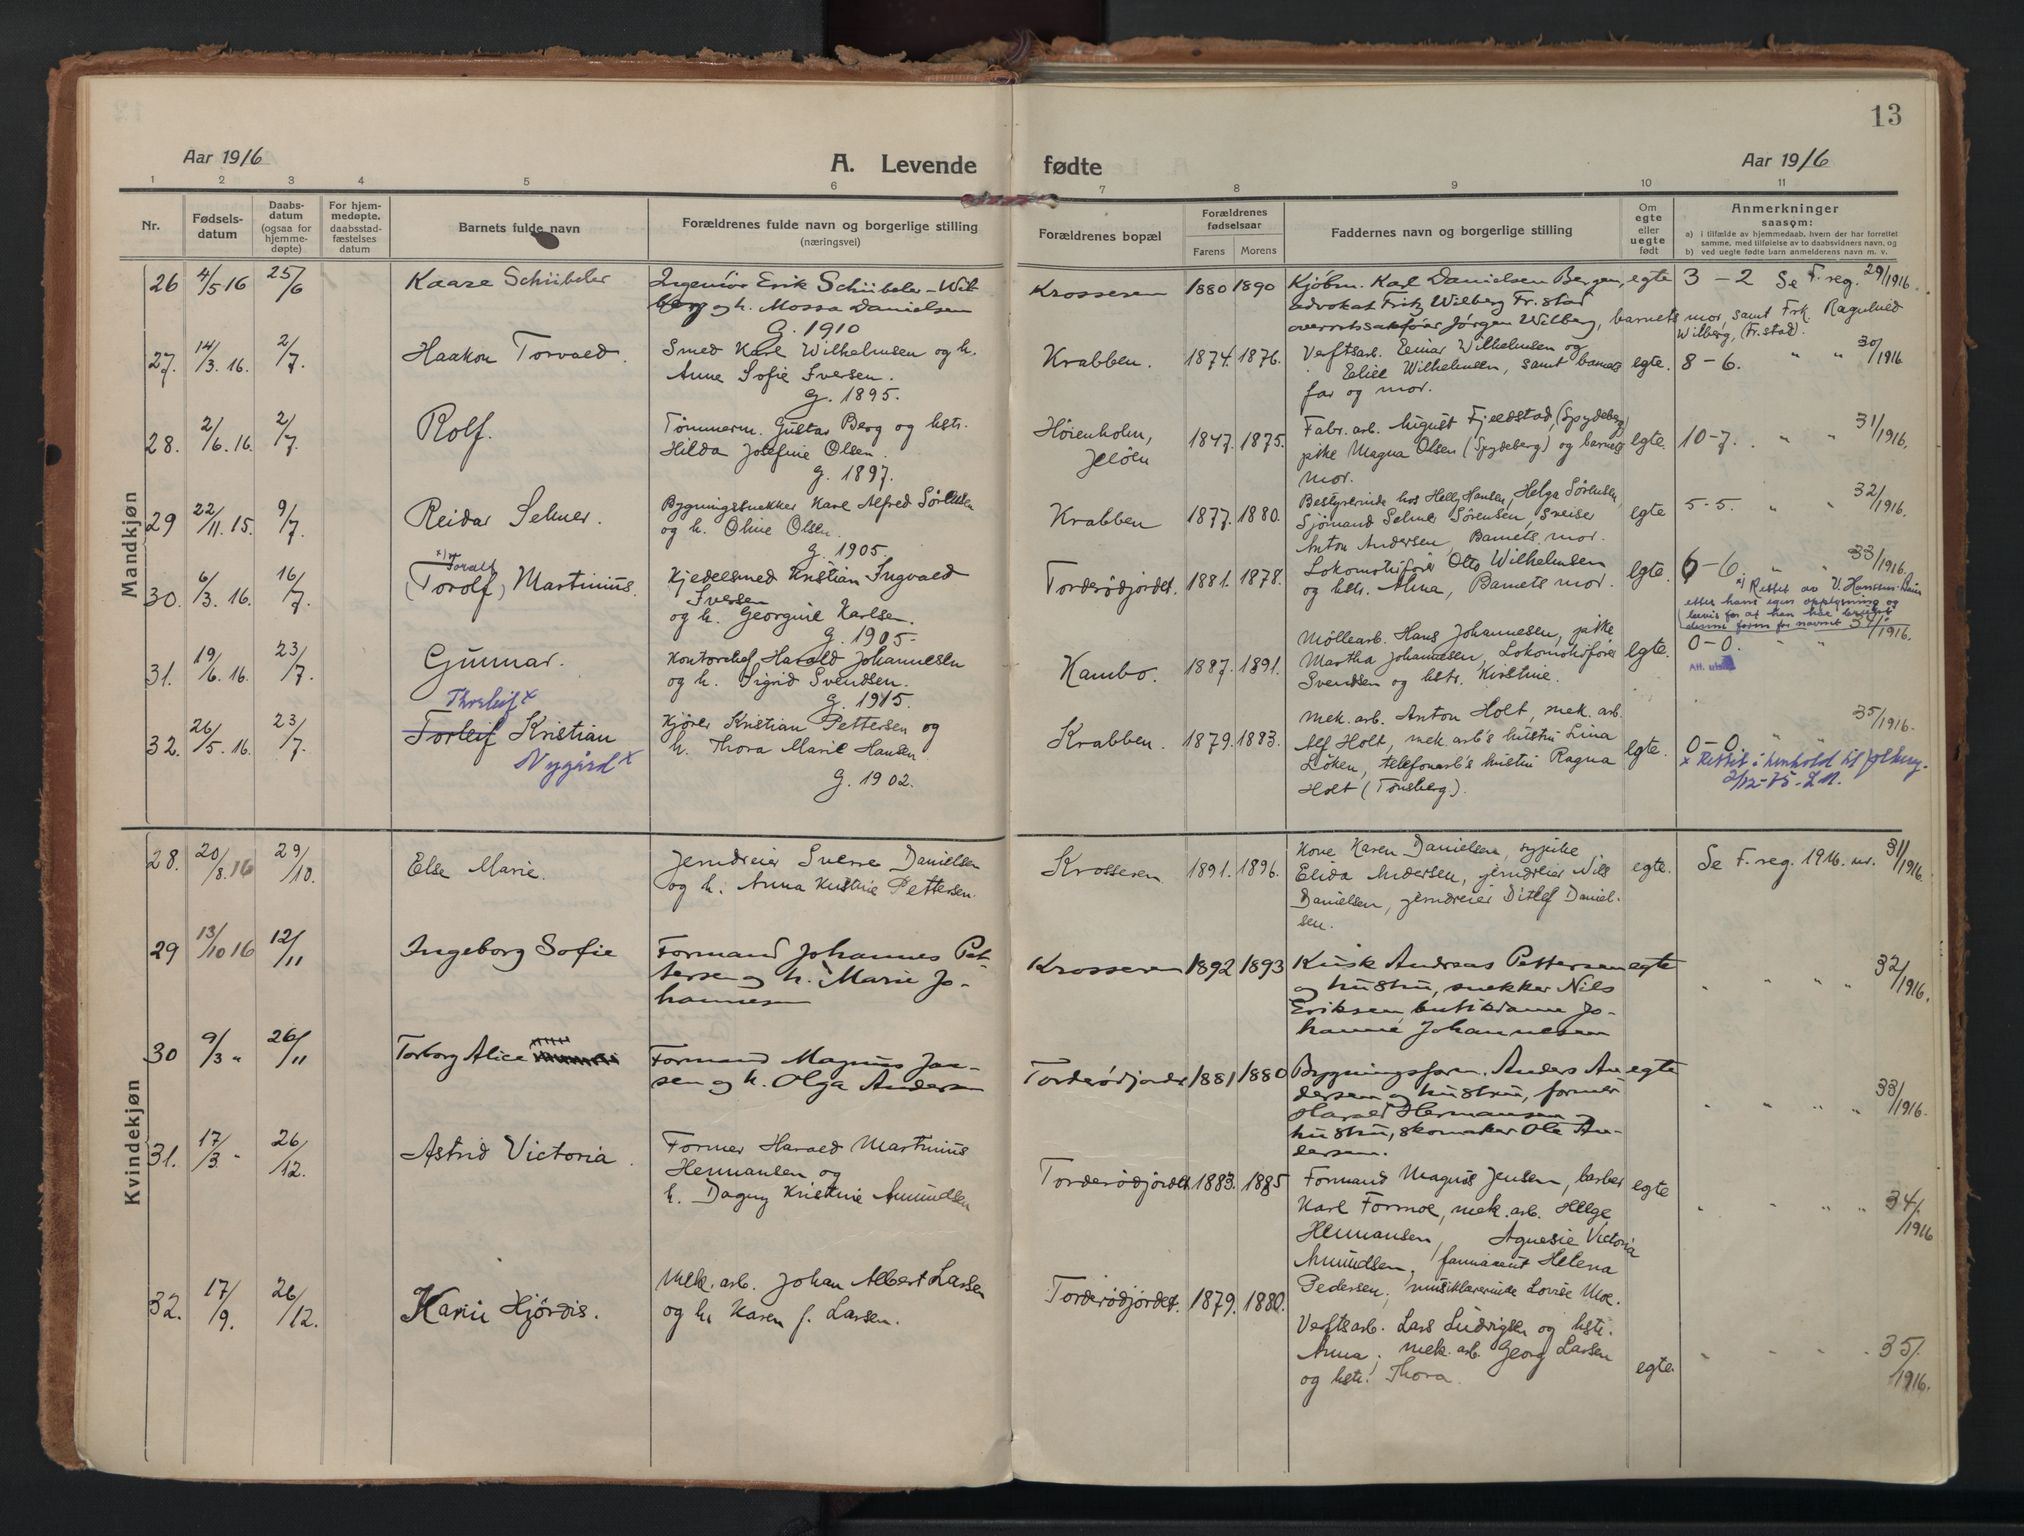 13
Aar 1916
A. Levende fødte
Aar 1916
1 2 3 4 5 6 7 8 9 10 11
Nr.
Fødsels-
datum
Daabs-
datum
(ogsaa for
hjemme-
døpte)
For hjem-
medøpte.
daabsstad-
fæstelses
datum
Barnets fulde navn
Forældrenes fulde navn og borgerlige stilling
(næringsvei)
Forældrenes bopæl
Forældrenes
fødselsaar
Farens Morens
Faddernes navn og borgerlige stilling
Om
egte
eller
uegte
født
Anmerkninger
saasom:
a) i tilfælde av hjemmedaab. hvem der har forrettet
samme, med tilføielse av to daabsvidners navn, og
b) ved uegte fødte barn anmelderens navn m. v.
Mandkjøn
26 4/5 16 25/6 Kaare Schübeler
Ingeniør Erik Schübeler-Wil-
berg og h. Mossa Danielsen
G. 1910
Krosseren 1880 1890
Kjøbm. Karl Danielsen Bergen,
advokat Fritz Wilberg Fr.stad
overretssakfører Jørgen Wilberg, barnets mor, samt Frk. Ragnhild
Wilberg, (Fr.stad).
egte 3-2 Se F. reg. 29/1916.
27. 14/3. 16. 2/7. Haakon Torvald.
Smed Karl Wilhelmsen og h.
Anne Sofie Iversen.
G. 1895.
Krabben. 1874. 1876.
Verftsarb. Einar Wilhelmsen og
Elise Wilhelmsen, samt barnets
far og mor.
egte. 8-6. " " 30/1916
28. 2/6. 16. 2/7. Rolf.
Tømmerm. Gustav Berg og hstr.
Hilda Josefine Olsen.
G. 1897.
Hørenholm,
Jeløen
1847. 1875.
Fabr. arb. August Fjeldstad, (Spydeberg)
pike Magna Olsen (Spydeberg) og barnets
mor.
egte. 10-7. " " 31/1916.
29 22/11. 15. 9/7. Reidar Selmer.
Bygningssnekker Karl Alfred Sørensen
og h. Oline Olsen.
G. 1905.
Krabben 1877. 1880.
Bestyrerinde hos Helly Hansen, Helga Sørensen,
Sjømand Selmer Sørensen, Sveiser
Anton Andersen, Barnets mor.
egte 5-5. " " 32/1916.
30. 6/3. 16. 16/7. x) Toralf
(Torolf) Martinius.
Kjedelsmed Kristian Ingvald
Iversen
og h. Georgine Karlsen.
G. 1905.
Torderødjordet. 1881. 1878.
Lokomotivfører Otto Wilhelmsen
og hstr. Alma, Barnets mor.
egte. 6-6. " " 33/1916.
x) Rettet av V. Hansteen-
efter hans egen opplysning og
bevis for at han har brukt
denne form for navnet
31. 19/6. 16. 23/7. Gunnar.
Kontorchef Harald Johannesen
og h. Sigrid Svendsen.
G. 1915.
Kambo. 1887. 1891.
Møllearb. Hans Johannesen, pike
Martha Johannesen, Lokomotivfører
Svendsen og hstr. Kirstine.
egte. 0-0. " " 34/1916.
Att. utst.
32. 26/5. 16. 23/7. Thorleif x
Torleif Kristian
Nygård x
Kjører Kristian Pettersen og
h. Thora Marie Hansen.
G. 1902.
Krabben. 1879. 1883.
Mek. arb. Anton Holt, mek. arb.
Alf Holt, mek. arb's hustru Lina
Løken, telefonarb's hustru Ragna
Holt (Tønsberg).
egte. 0-0. " " 35/1916.
x Rettet i henhold til folkreg.
2/12-75-
Kvindekjøn
28. 20/8. 16 29/10. Else Marie.
Jerndreier Sverre Danielsen
og h. Anna Kristine Pettersen.
Krosseren 1891. 1896.
Kone Karen Danielsen, sypike
Elida Andersen, jerndreier Nils
Danielsen, jerndreier Ditlef Daniel-
sen.
egte. Se F. reg. 1916. nr. 31/1916.
29 13/10 16 12/11 Ingeborg Sofie
Formand Johannes Pet-
tersen og h. Marie Jo-
hannesen
Krosseren 1892 1893
Kusk Andreas Pettersen
og hustru, snekker Nils
Eriksen, butikdame Jo-
hanne Johannesen
egte " " " " 32/1916.
30 9/3 " 26/11 Torborg Alice
Formand Magnus Jan-
sen og h. Olga Andersen
Torderødjordet 1881 1880
Bygningsform. Anders An-
dersen og hustru, former
Harald Hermansen og
hustru, skomaker Ole An-
dersen.
egte " " " " 33/1916.
31. 17/3. " 26/12. Astrid Victoria.
Former Harald Martinius
Hermansen og
h. Dagny Kristine Amundsen
Torderødjordet 1883. 1885
Formand Magnus Jensen, barber
Karl Formoe, mek. arb. Helge
Hermansen, Agnesie Victoria
Amundsen, farmaceut Helena
Pedersen, musiklærerinde Lovise Moe.
egte " " " " 34/1916
32. 17/9. 26/12. Karin Hjørdis.
Mek. arb. Johan Albert Larsen
og h. Karen f. Larsen.
Torderødjordet. 1879. 1880.
Verftsarb. Lars Ludvigsen og hstr.
Anna, mek. arb. Georg Larsen
og hstr. Thora.
egte. " " " " 35/1916.